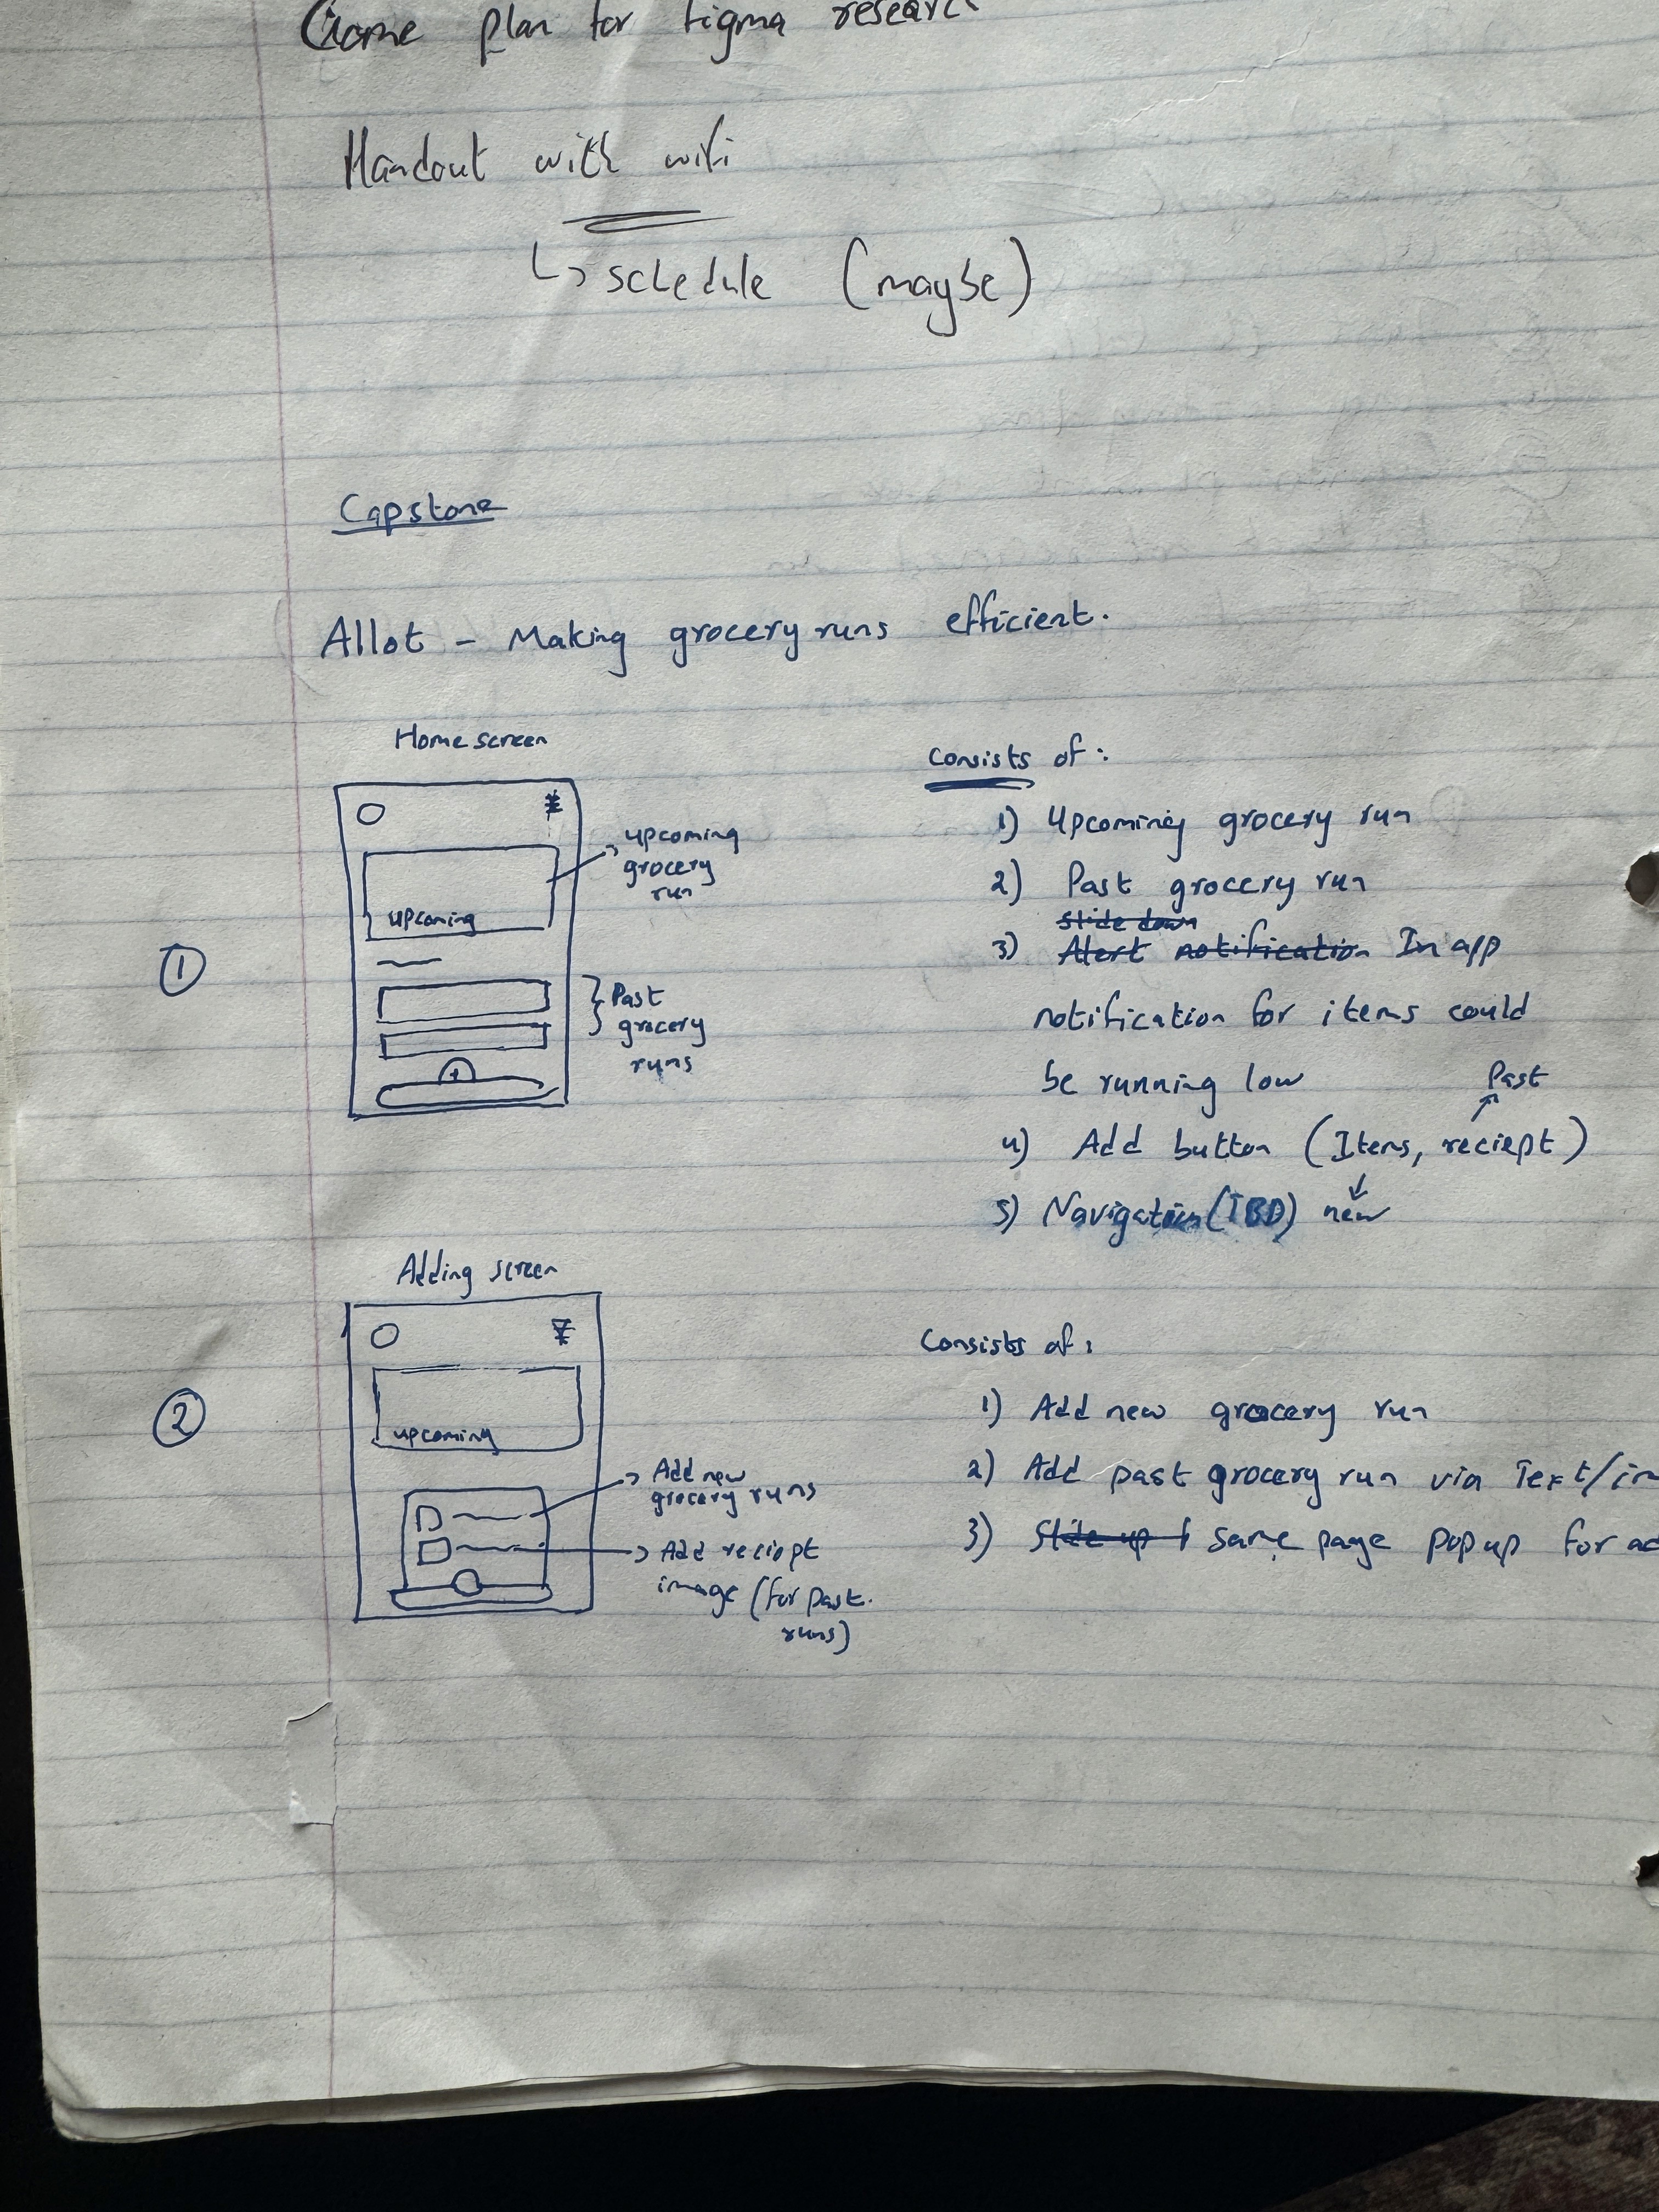 Game plan for figma research
Handout with wifi
↳ schedule (maybe)
Capstone
Allot – Making grocery runs efficient.
Home screen
upcoming
grocery
run
upcoming
Past
grocery
runs
+
①
Consists of :
1) Upcoming grocery run
2) Past grocery run
slide down
3) Alert notification In app
notification for items could
be running low
Past
4) Add button (Items, reciept)
5) Navigation (TBD) new
Adding screen
②
upcoming
Add new
grocery runs
Add reciept
image (for past.
runs)
Consists of :
1) Add new grocery run
2) Add past grocery run via Text/im
3) Slide up same page pop up for ad